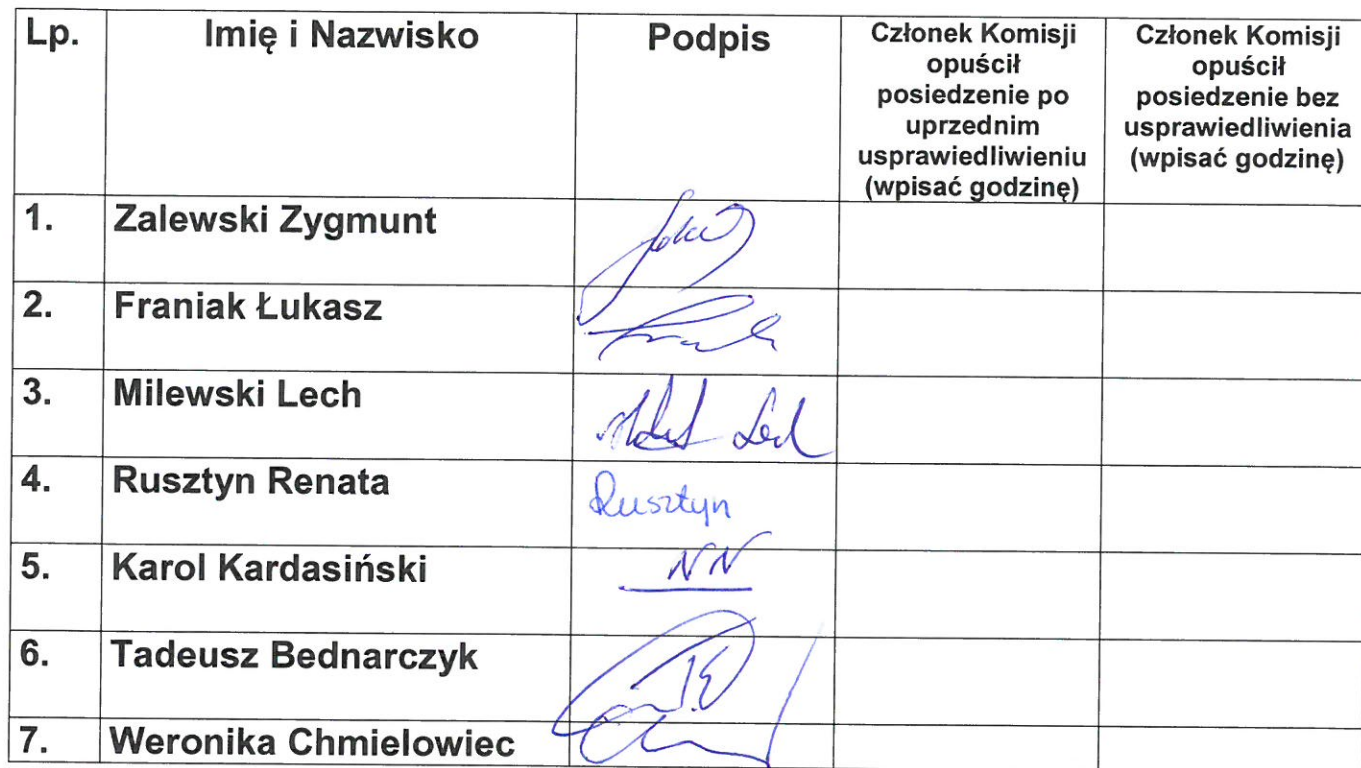 Lp. Imię i Nazwisko Podpis Członek Komisji opuścił posiedzenie po uprzednim usprawiedliwieniu (wpisać godzinę) Członek Komisji opuścił posiedzenie bez usprawiedliwienia (wpisać godzinę)
1. Zalewski Zygmunt
2. Franiak Łukasz
3. Milewski Lech
4. Rusztyn Renata Rusztyn
5. Karol Kardasiński NN
6. Tadeusz Bednarczyk
7. Weronika Chmielowiec